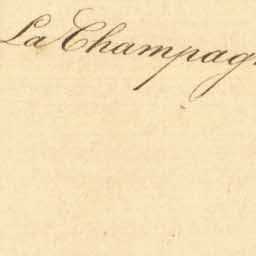 La Champag